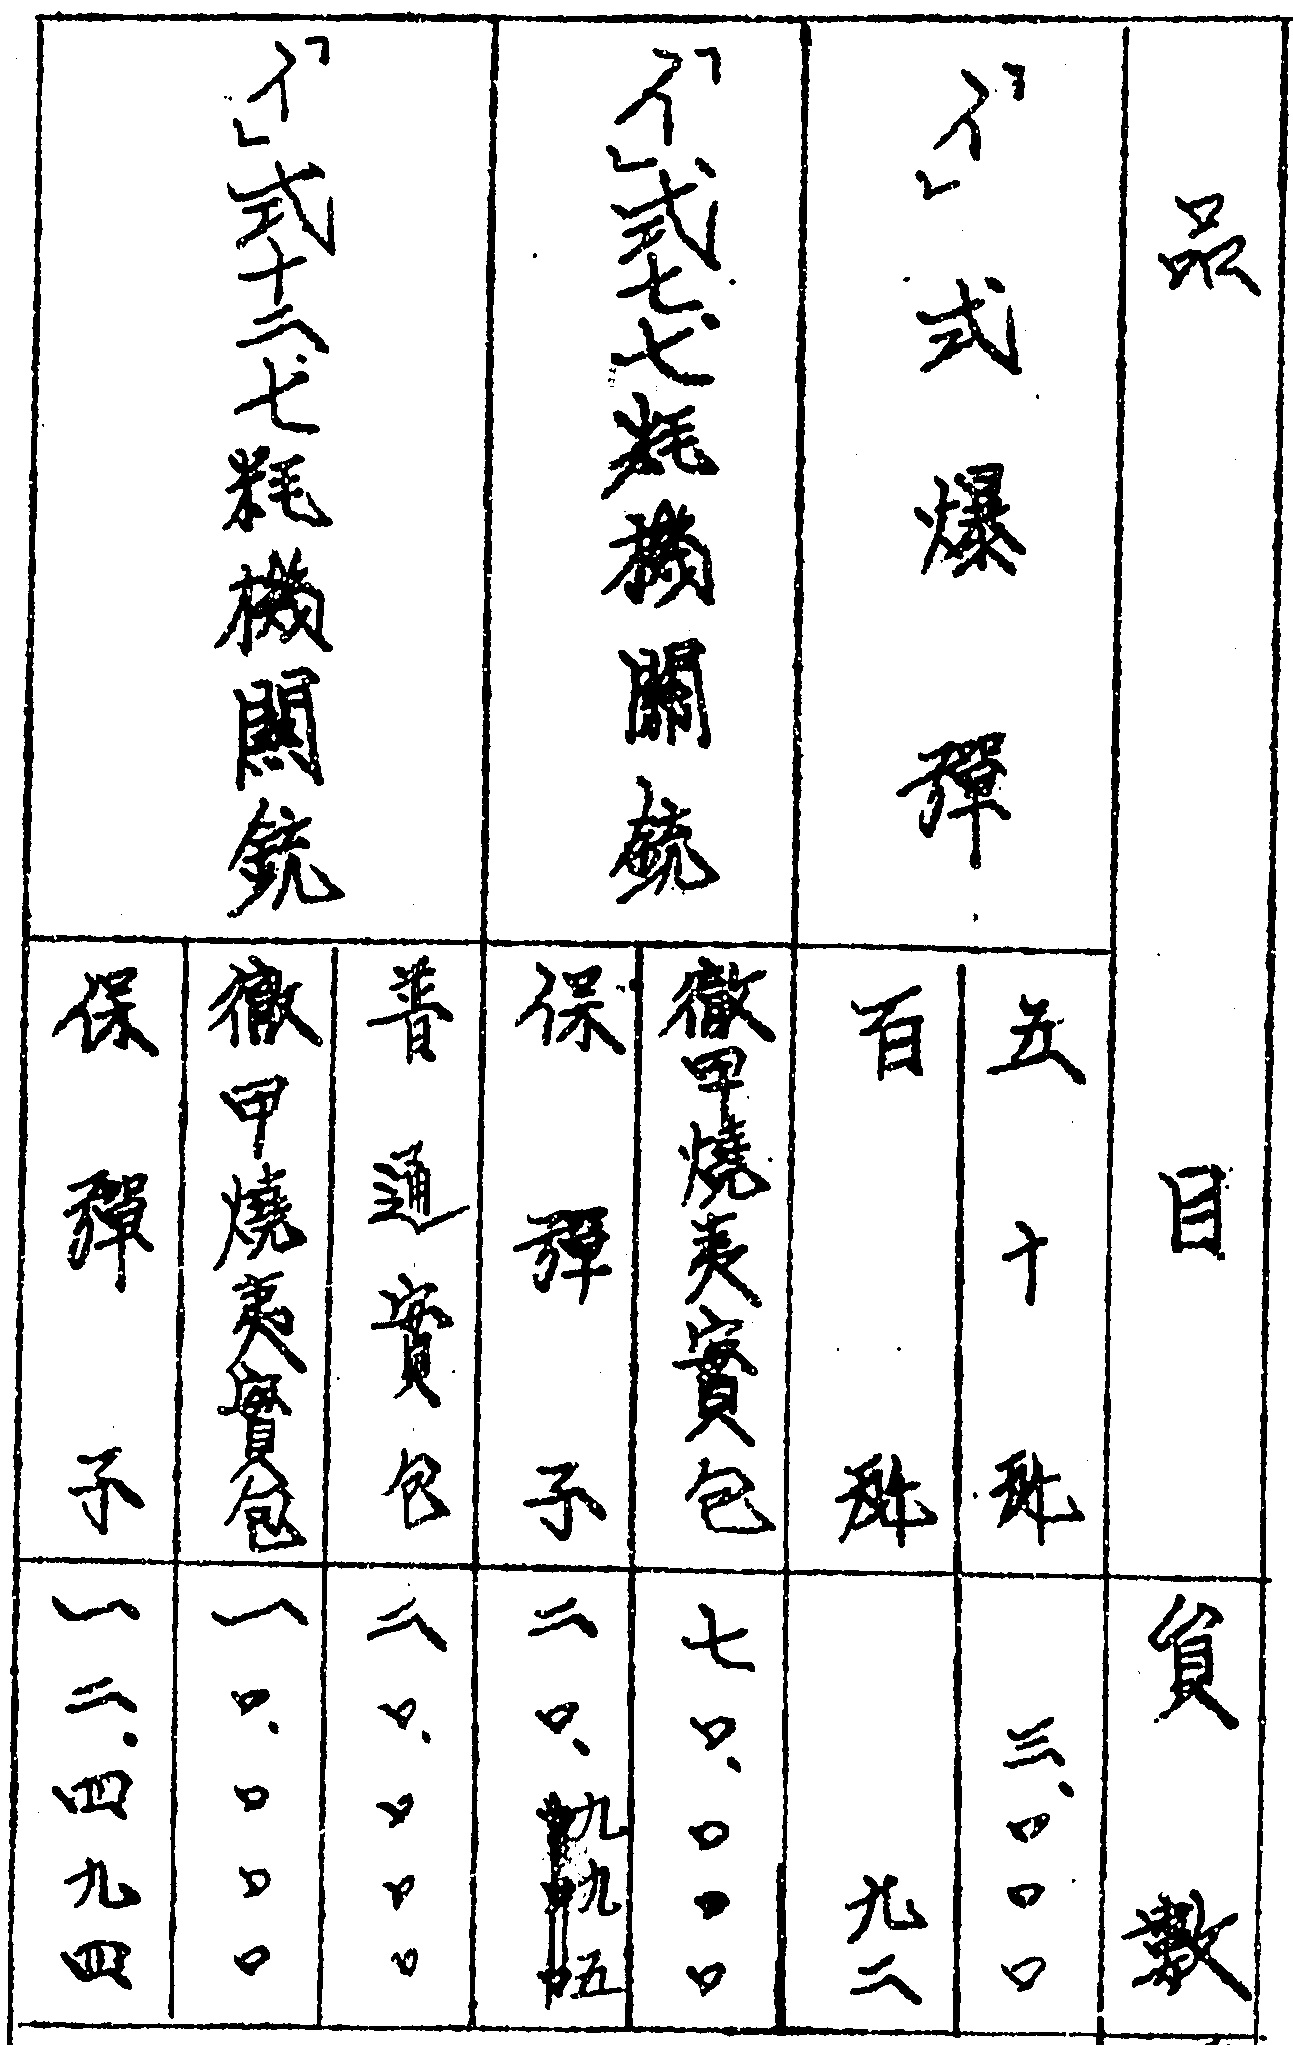 品目
員數
「イ」式爆彈
五十瓩
三、〇〇〇
百瓩
九二
「イ」式七七粍機關銃
徹甲燒夷實包
七〇、〇〇〇
保彈子
二〇、九九五
「イ」式十二七粍機関銃
普通實包
二〇、〇〇〇
徹甲燒夷實包
一〇、〇〇〇
保彈子
一二、四九四